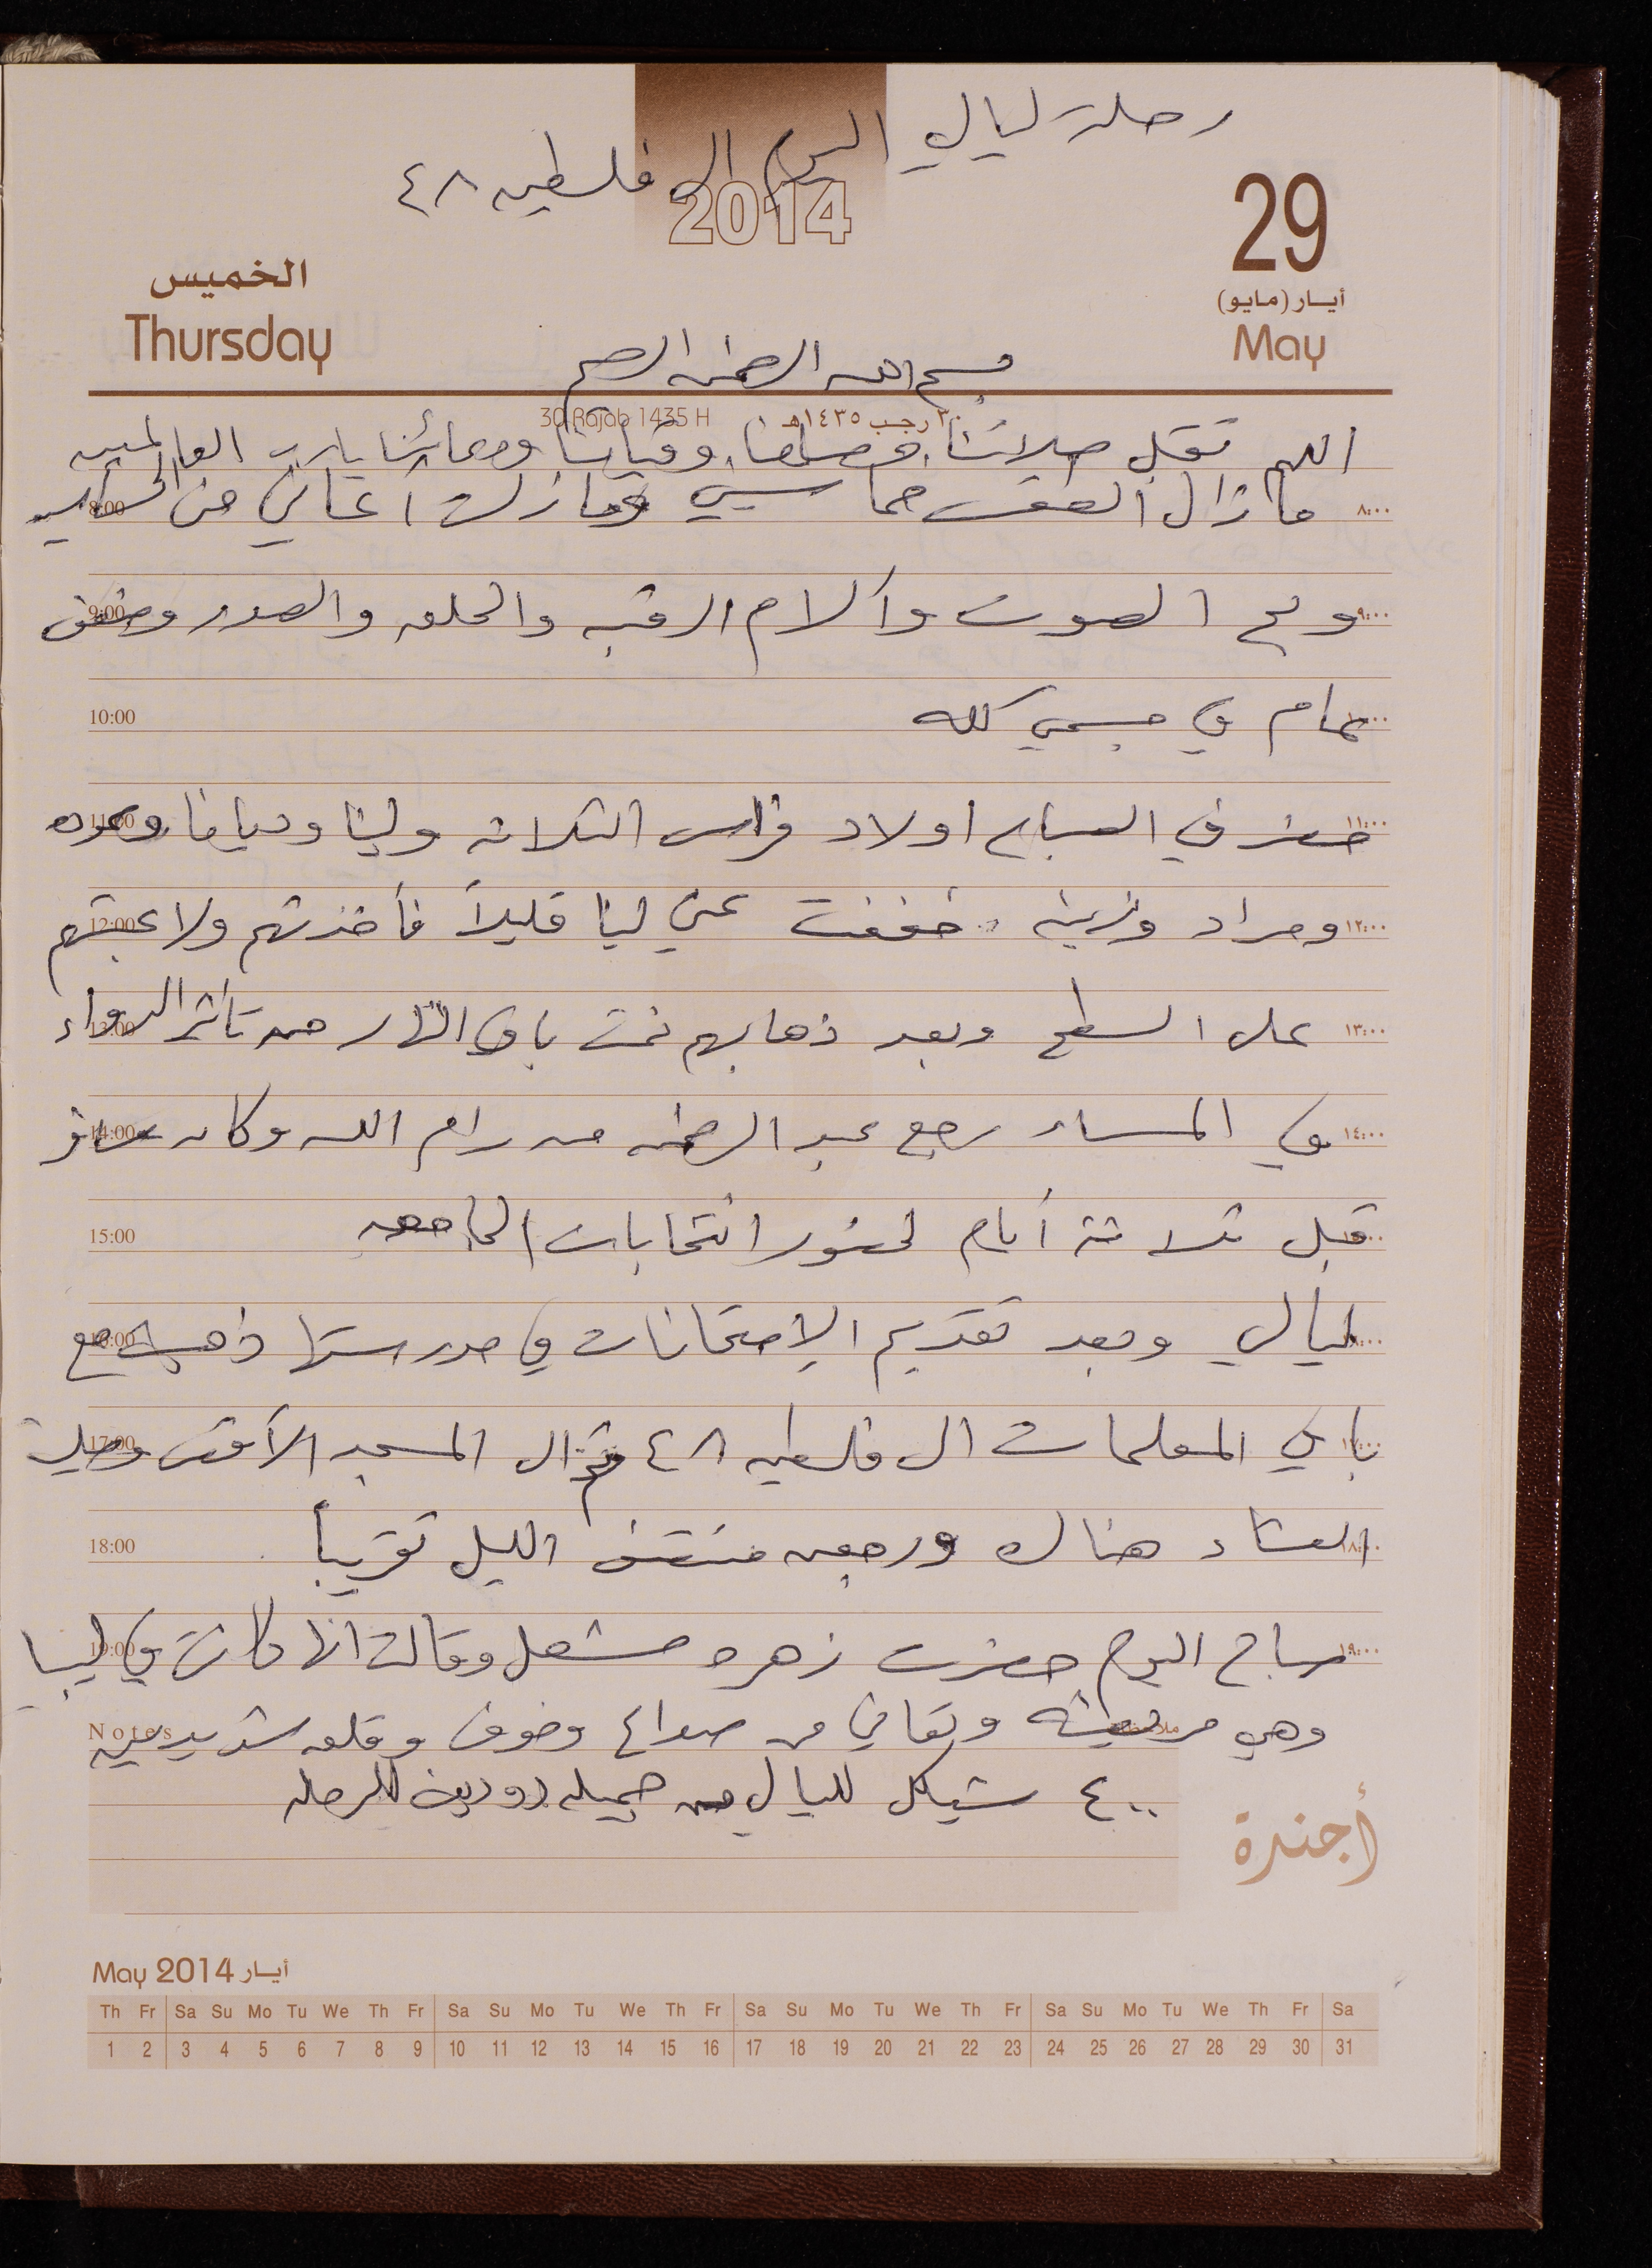 رحلة ليالي اليوم الى فلسطين ٤٨
2014
29
أيـار (مايو)
May
الخميس
Thursday
بسم الله الرحمن الرحيم
30 Rajab 1435 H
٣٠ رجب ١٤٣٥هـ
اللهم تقبل صلاتنا وصيامنا وقيامنا ودعائنا يارب العالمين
8:00 ما زال الطقس خماسيني وما زلت أعاني من ٨:٠٠
9:00 وبح الصوت وآلام الرقبه والحلق والصدر وضعف ٩:٠٠
10:00 عام في جسمي كله
11:00 حضر في الصباح اولاد فراس الثلاثه ولينا وديانا ١١:٠٠
12:00 ومراد وزينه خففت عن لينا قليلاً فأخذتهم ولاعبتهم ١٢:٠٠
13:00 على السطح وبعد ذهابهم نمت باقي النهار من تأثير الدواء ١٣:٠٠
14:00 في المساء رجع عبد الرحمن من رام الله وكان سافر ١٤:٠٠
15:00 قبل ثلاثة أيام لحضور انتخابات الجامعه
16:00 ليالي وبعد تقديم الإمتحانات في مدرستها ذهبت مع
17:00 باقي المعلمات الى فلسطين ٤٨ ثم الى المسجد الأقصى وصلين
18:00 العشاء هناك ورجعن منتصف الليل تقريباً ١٨:٠٠
19:00 صباح اليوم حضرت زهره مشعل وقالت انها كانت في ليبيا ١٩:٠٠
Notes وهي مريضه وتعاني من صداع وخوف وقلق شديدين ملاحظات
٤٠٠ شيكل لليالي من جميله للرحله
أجندة
May 2014 أيـار
Th Fr Sa Su Mo Tu We Th Fr Sa Su Mo Tu We Th Fr Sa Su Mo Tu We Th Fr Sa Su Mo Tu We Th Fr Sa
1 2 3 4 5 6 7 8 9 10 11 12 13 14 15 16 17 18 19 20 21 22 23 24 25 26 27 28 29 30 31